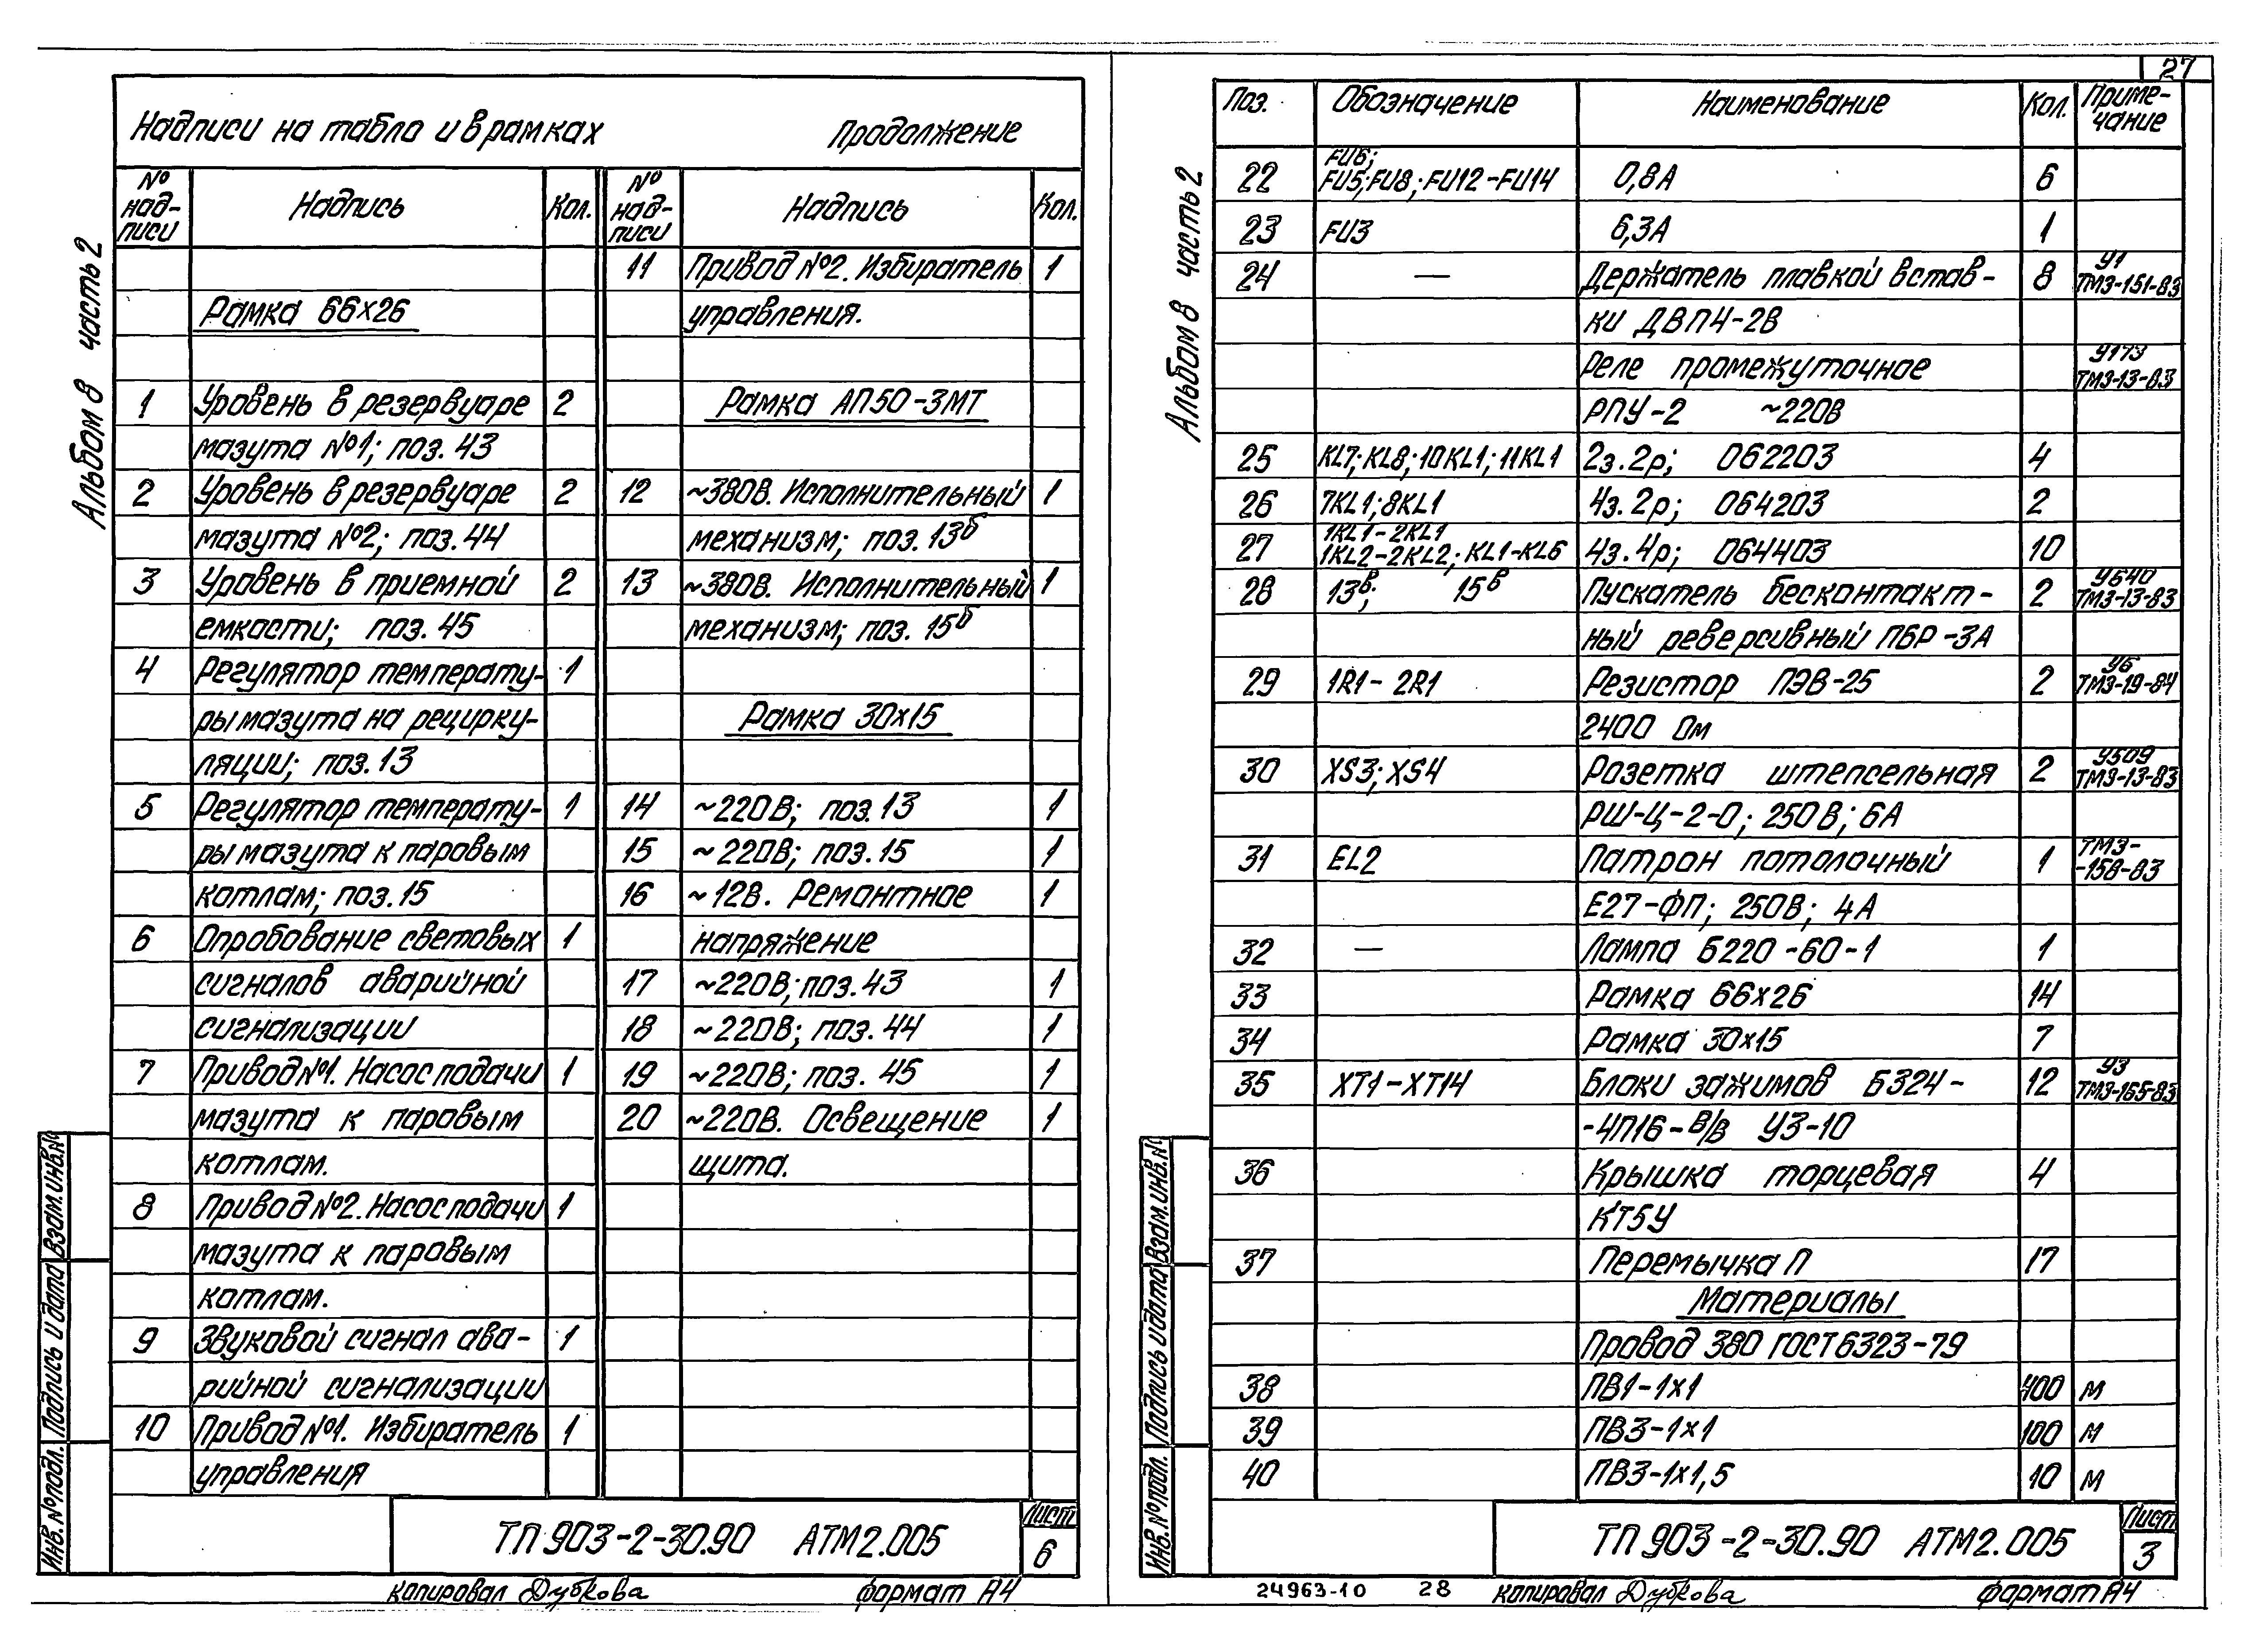 Альбом 8 часть 2
Надписи на табло и в рамках Продолжение
№ над-писи Надпись Кол. № над-писи Надпись Кол.
Рамка 66х26
1 Уровень в резервуаре 2
мазута №1; поз. 43
2 Уровень в резервуаре 2
мазута №2; поз. 44
3 Уровень в приемной 2
емкости; поз. 45
4 Регулятор температу- 1
ры мазута на рецирку-
ляции; поз. 13
5 Регулятор температу- 1
ры мазута к паровым
котлам; поз. 15
6 Опробование световых 1
сигналов аварийной
сигнализации
7 Привод №1. Насос подачи 1
мазута к паровым
котлам.
8 Привод №2. Насос подачи 1
мазута к паровым
котлам.
9 Звуковой сигнал ава- 1
рийной сигнализации
10 Привод №1. Избиратель 1
управления
11 Привод №2. Избиратель 1
управления.
Рамка АП50-3МТ
12 ~380В. Исполнительный 1
механизм; поз. 13б
13 ~380В. Исполнительный 1
механизм; поз. 15б
Рамка 30х15
14 ~220В; поз. 13 1
15 ~220В; поз. 15 1
16 ~12В. Ремонтное 1
напряжение
17 ~220В; поз. 43 1
18 ~220В; поз. 44 1
19 ~220В; поз. 45 1
20 ~220В. Освещение 1
щита.
Инв. № подл. Подпись и дата Взам. инв. №
ТП 903-2-30.90 АТМ2.005 Лист 6
копировал Дубкова формат А4
27
Альбом 8 часть 2
Поз. Обозначение Наименование Кол. Приме-чание
FU6;
22 FU5; FU8; FU12-FU14 0,8А 6
23 FU3 6,3А 1
24 — Держатель плавкой встав- 8 У1 ТМ3-151-83
ки ДВП4-2В
Реле промежуточное У173 ТМ3-13-83
РПУ-2 ~220В
25 KL7; KL8; 10KL1; 11KL1 2з.2р; 062203 4
26 7KL1; 8KL1 4з.2р; 064203 2
1KL1-2KL1
27 1KL2-2KL2; KL1-KL6 4з.4р; 064403 10
28 13в; 15в Пускатель бесконтакт- 2 У640 ТМ3-13-83
ный реверсивный ПБР-3А
29 1R1-2R1 Резистор ПЭВ-25 2 У6 ТМ3-19-84
2400 Ом
30 XS3; XS4 Розетка штепсельная 2 У509 ТМ3-13-83
РШ-Ц-2-0; 250В; 6А
31 EL2 Патрон потолочный 1 ТМ3--158-83
Е27-ФП; 250В; 4А
32 — Лампа Б220-60-1 1
33 Рамка 66х26 14
34 Рамка 30х15 7
35 XT1-XT14 Блоки зажимов Б324- 12 У3 ТМ3-165-83
-4П16-В/В У3-10
36 Крышка торцевая 4
КТ5У
37 Перемычка П 17
Материалы
Провод 380 ГОСТ 6323-79
38 ПВ1-1х1 400 м
39 ПВ3-1х1 100 м
40 ПВ3-1х1,5 10 м
Инв. № подл. Подпись и дата Взам. инв. №
ТП 903-2-30.90 АТМ2.005 Лист 3
24963-10 28 копировал Дубкова формат А4